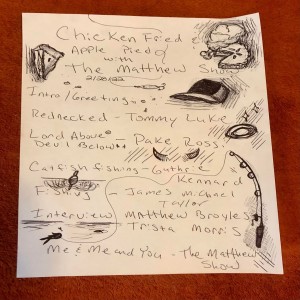 Chicken Fried &
Apple Pie
with
The Matthew Show
2/20/22
Intro/Greeting
Rednecked - Tommy Luke
Lord Above
Devil Below - Dake Ross
Catfish fishing - Guthrie Kennard
Fishing - James Michael Taylor
Interview Matthew Broyles
Trista Morris
Me & Me and You - The Matthew Show